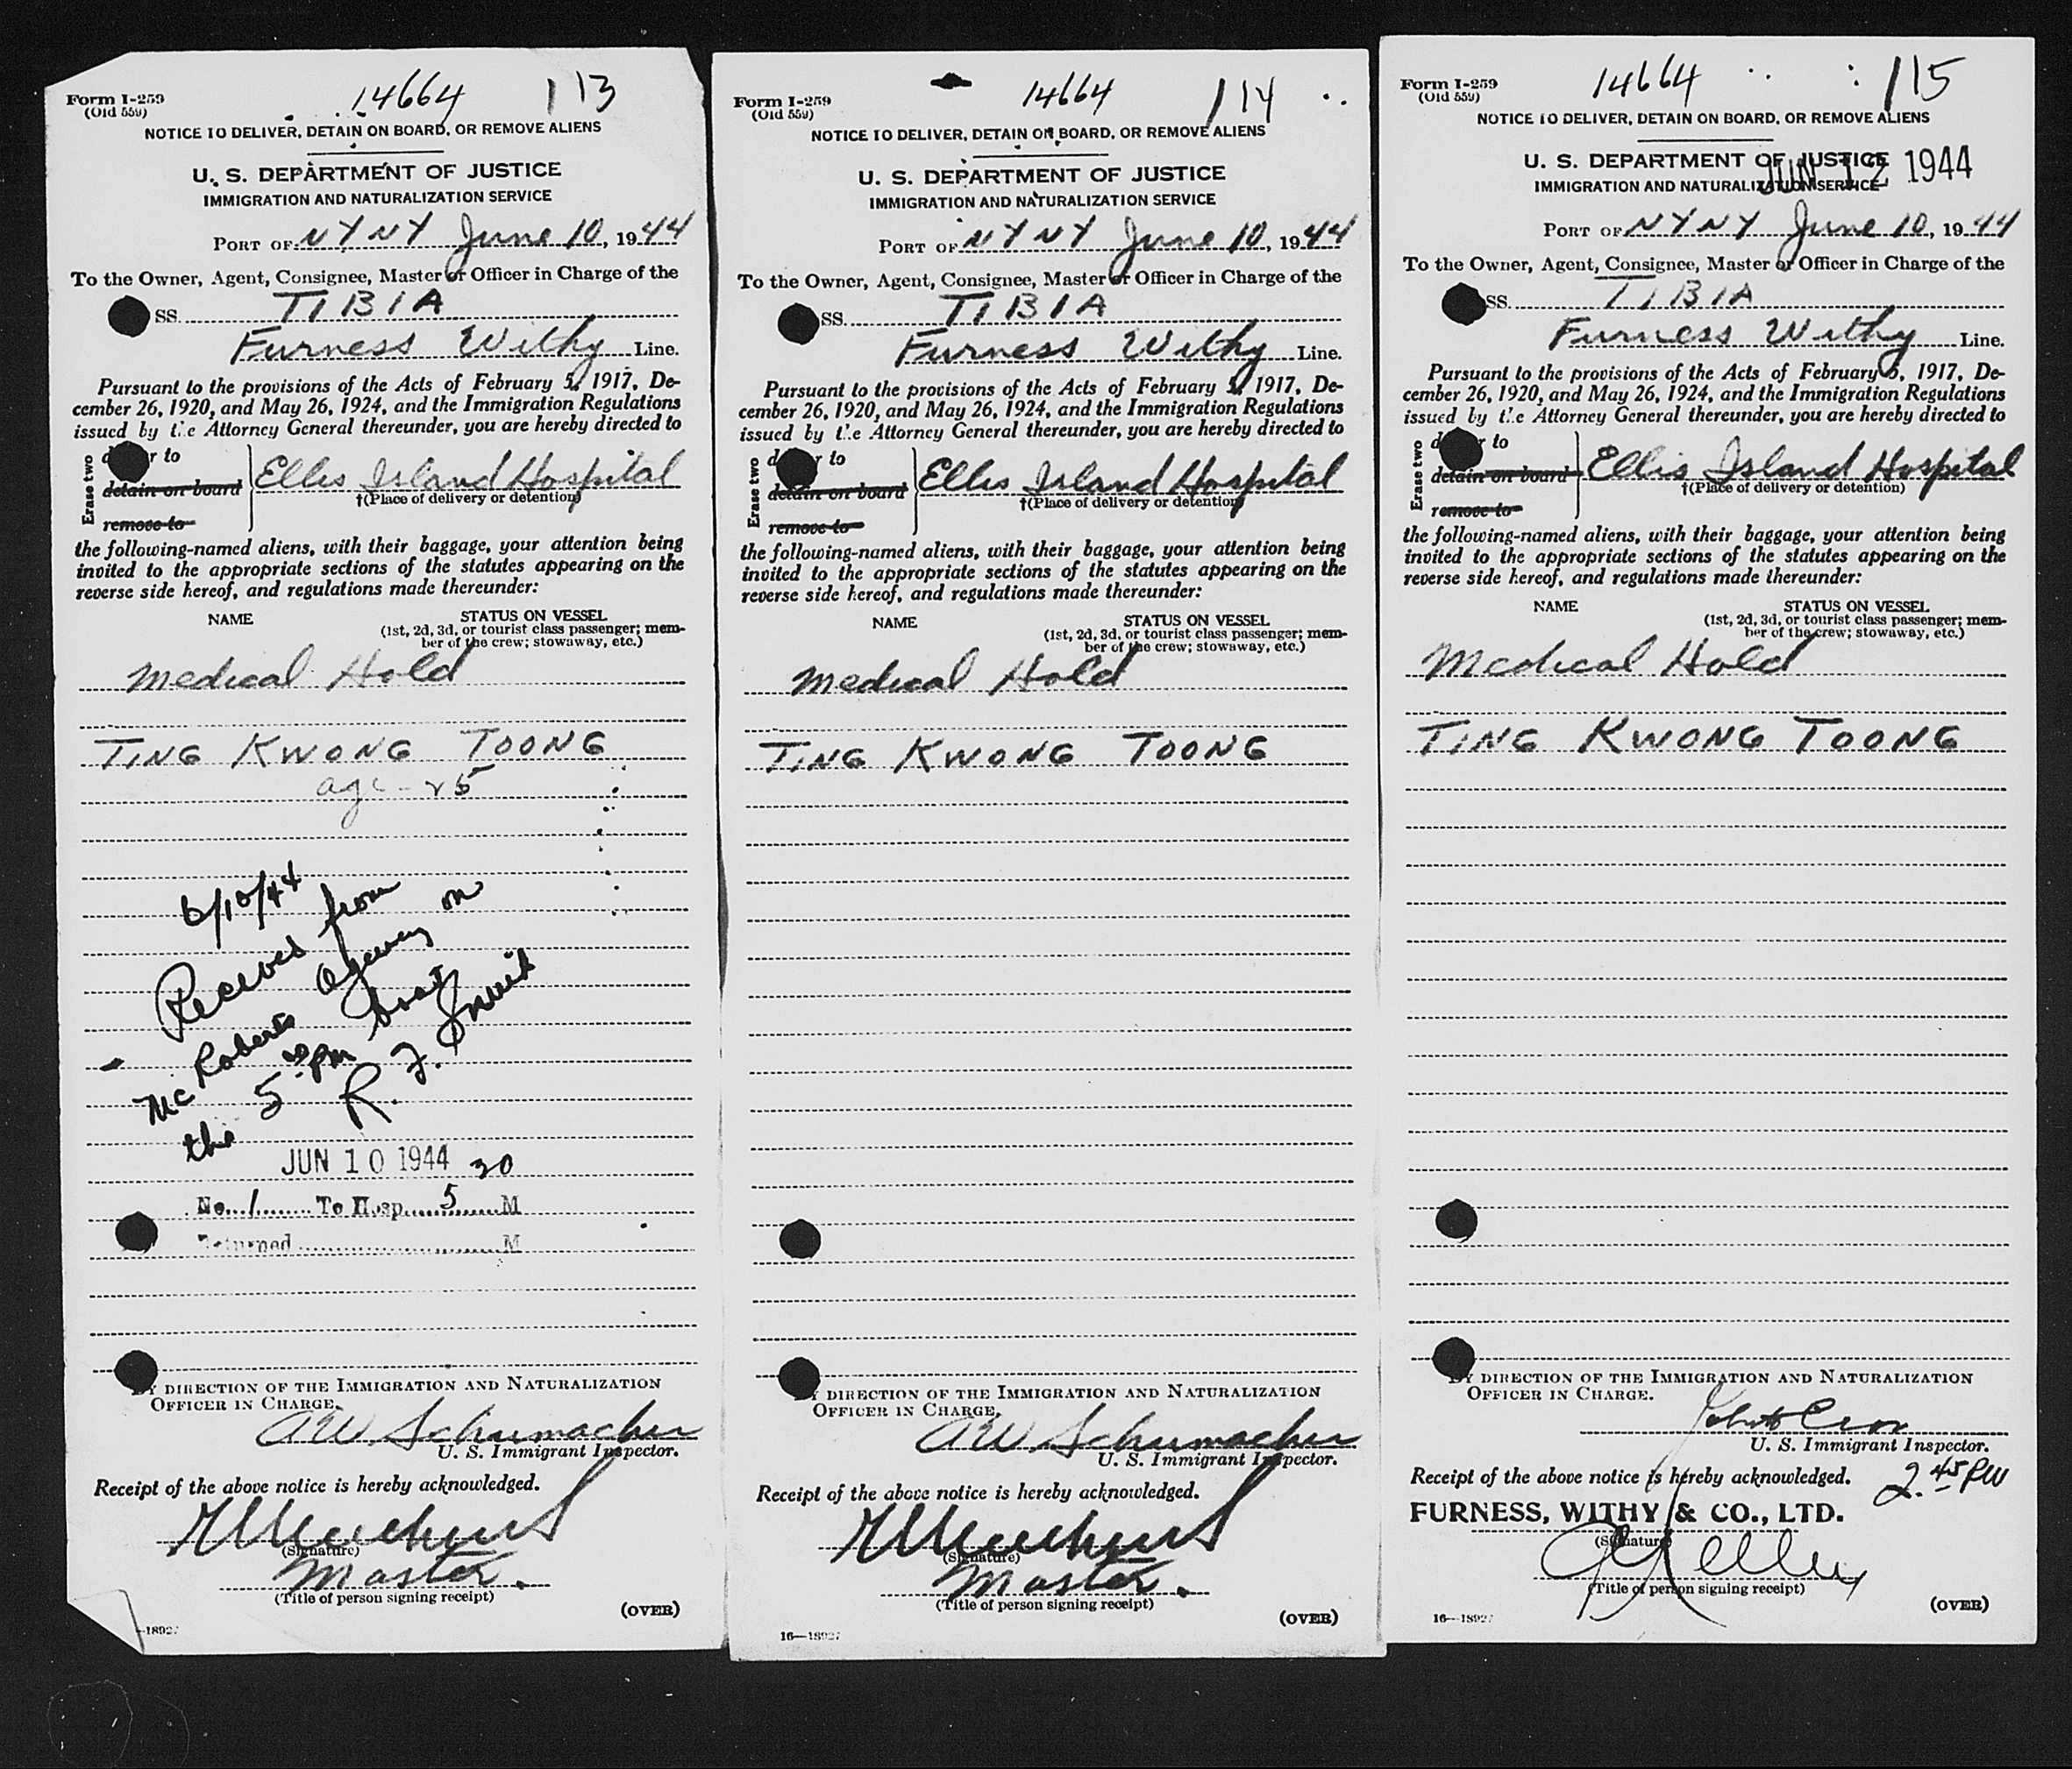 Form I-259
(Old 559)
14664 113
NOTICE TO DELIVER, DETAIN ON BOARD, OR REMOVE ALIENS
U. S. DEPARTMENT OF JUSTICE
IMMIGRATION AND NATURALIZATION SERVICE
PORT OF NY NY June 10, 1944
To the Owner, Agent, Consignee, Master or Officer in Charge of the
SS. TIBIA
Furness Withy Line.
Pursuant to the provisions of the Acts of February 5, 1917, De-
cember 26, 1920, and May 26, 1924, and the Immigration Regulations
issued by the Attorney General thereunder, you are hereby directed to
Erase two
to
detain on board
remove to
Ellis Island Hospital
†(Place of delivery or detention)
the following-named aliens, with their baggage, your attention being
invited to the appropriate sections of the statutes appearing on the
reverse side hereof, and regulations made thereunder:
NAME STATUS ON VESSEL
(1st, 2d, 3d, or tourist class passenger; mem-
ber of the crew; stowaway, etc.)
Medical Hold
TING KWONG TOONG
age - 25
6/10/44
Received from
McRoberts Agency on
the 5 00 PM boat
R. F.
JUN 10 1944 30
No. 1 To Hosp. 5 M
Returned M
BY DIRECTION OF THE IMMIGRATION AND NATURALIZATION
OFFICER IN CHARGE.
AW Schumacher
U. S. Immigrant Inspector.
Receipt of the above notice is hereby acknowledged.
(Signature)
Master.
(Title of person signing receipt)
(OVER)
—18927
Form I-259
(Old 559)
14664 114
NOTICE TO DELIVER, DETAIN ON BOARD, OR REMOVE ALIENS
U. S. DEPARTMENT OF JUSTICE
IMMIGRATION AND NATURALIZATION SERVICE
PORT OF NY NY June 10, 1944
To the Owner, Agent, Consignee, Master or Officer in Charge of the
SS. TIBIA
Furness Withy Line.
Pursuant to the provisions of the Acts of February 5, 1917, De-
cember 26, 1920, and May 26, 1924, and the Immigration Regulations
issued by the Attorney General thereunder, you are hereby directed to
Erase two
to
detain on board
remove to
Ellis Island Hospital
†(Place of delivery or detention)
the following-named aliens, with their baggage, your attention being
invited to the appropriate sections of the statutes appearing on the
reverse side hereof, and regulations made thereunder:
NAME STATUS ON VESSEL
(1st, 2d, 3d, or tourist class passenger; mem-
ber of the crew; stowaway, etc.)
Medical Hold
TING KWONG TOONG
BY DIRECTION OF THE IMMIGRATION AND NATURALIZATION
OFFICER IN CHARGE.
AW Schumacher
U. S. Immigrant Inspector.
Receipt of the above notice is hereby acknowledged.
(Signature)
Master.
(Title of person signing receipt)
(OVER)
16—18927
Form I-259
(Old 559)
14664 115
NOTICE TO DELIVER, DETAIN ON BOARD, OR REMOVE ALIENS
U. S. DEPARTMENT OF JUSTICE
JUN 12 1944
IMMIGRATION AND NATURALIZATION SERVICE
PORT OF NY NY June 10, 1944
To the Owner, Agent, Consignee, Master or Officer in Charge of the
SS. TIBIA
Furness Withy Line.
Pursuant to the provisions of the Acts of February 5, 1917, De-
cember 26, 1920, and May 26, 1924, and the Immigration Regulations
issued by the Attorney General thereunder, you are hereby directed to
Erase two
to
detain on board
remove to
Ellis Island Hospital
†(Place of delivery or detention)
the following-named aliens, with their baggage, your attention being
invited to the appropriate sections of the statutes appearing on the
reverse side hereof, and regulations made thereunder:
NAME STATUS ON VESSEL
(1st, 2d, 3d, or tourist class passenger; mem-
ber of the crew; stowaway, etc.)
Medical Hold
TING KWONG TOONG
BY DIRECTION OF THE IMMIGRATION AND NATURALIZATION
OFFICER IN CHARGE.
U. S. Immigrant Inspector.
Receipt of the above notice is hereby acknowledged. 2.45 PM
FURNESS, WITHY & CO., LTD.
(Signature)
(Title of person signing receipt)
(OVER)
16—18927